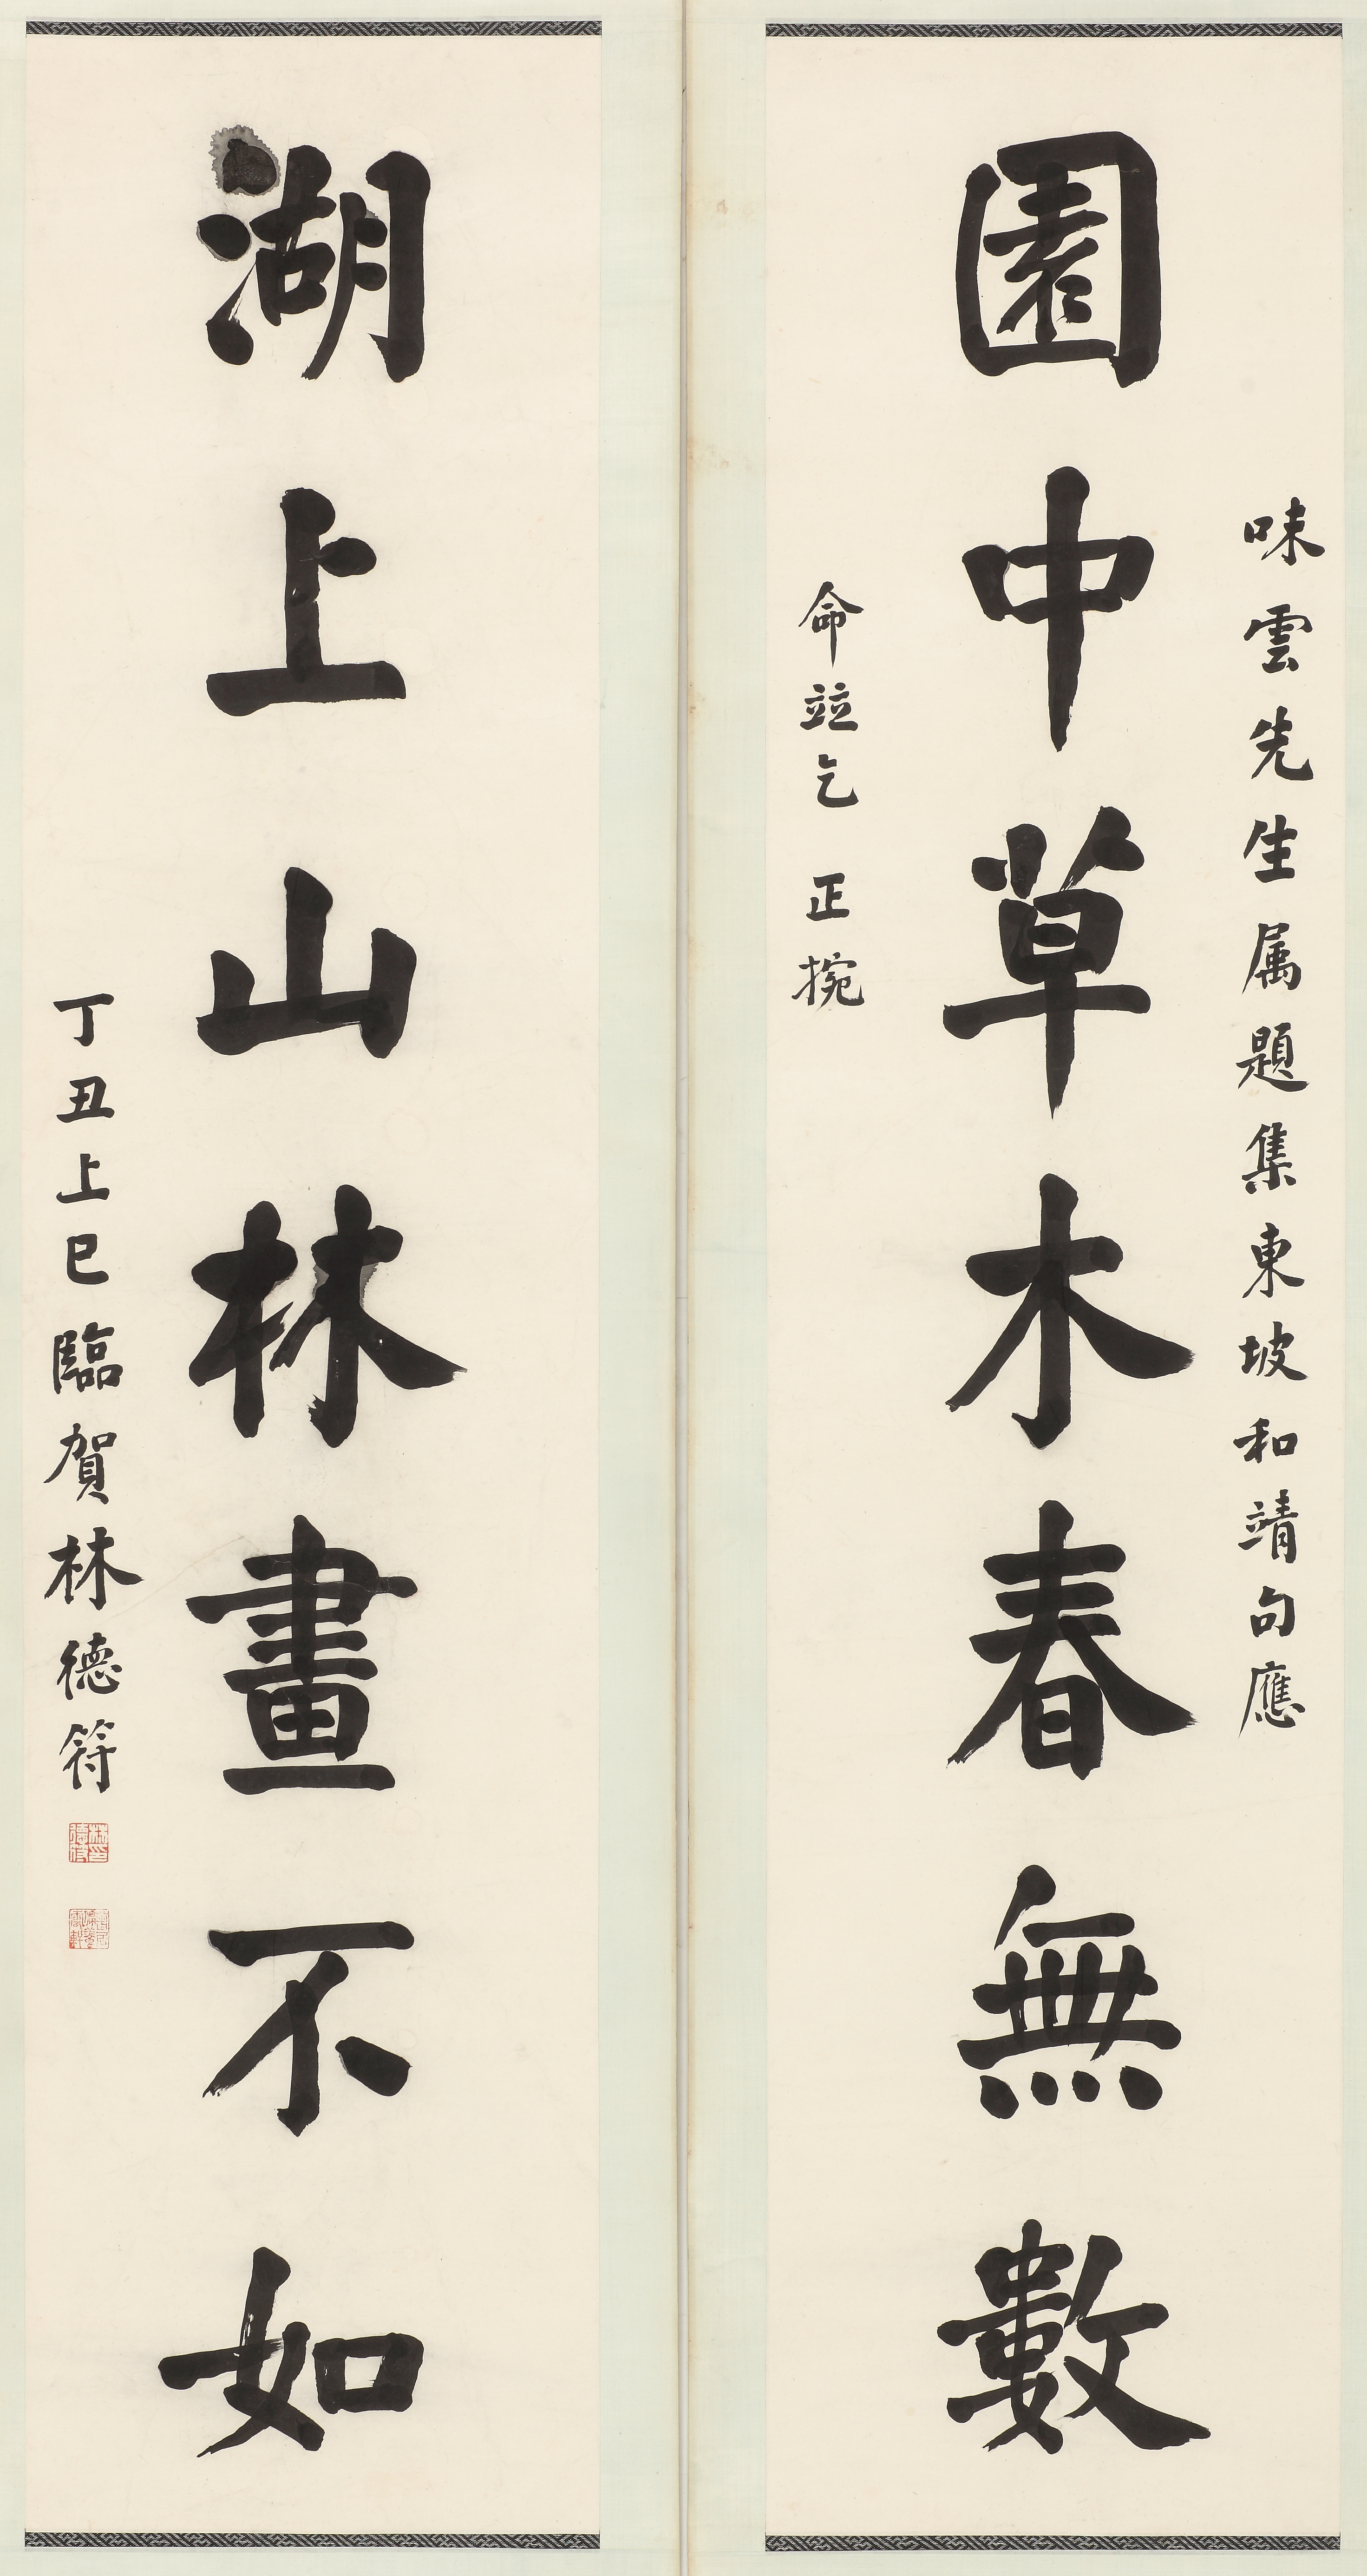 味雲先生属題集東坡和靖句應
園中草木春無數
命竝乞 正捥
湖上山林畫不如
丁丑上巳臨賀林德符